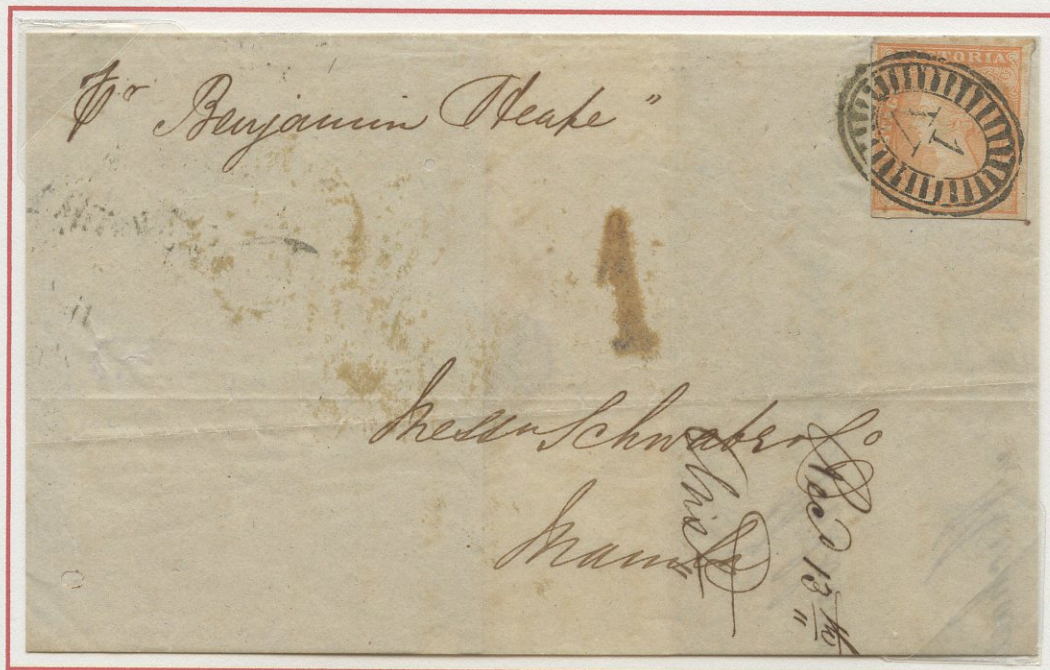 pr Benjamin Heape"
VICTORIA
1
1
Messrs Schwabe & Co
Manila
Ship
Recd 13th